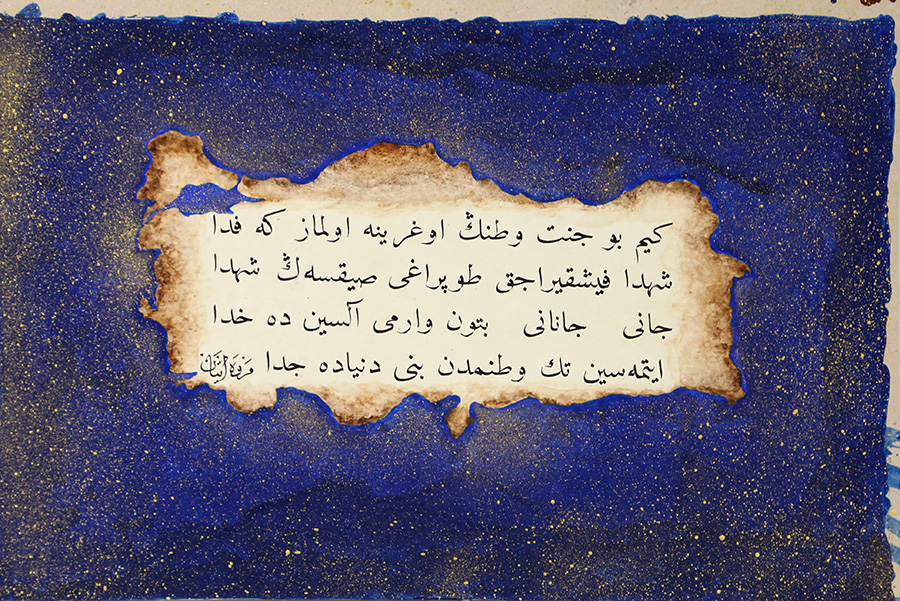 كيم بو جنت وطنڭ اوغرينه اولماز كه فدا
شهدا فيشقيراجق طوپراغى صيقسه‌ڭ شهدا
جانى جانانى بتون وارمى آلسين ده خدا
ايتمه‌سين تك وطنمدن بنى دنياده جدا